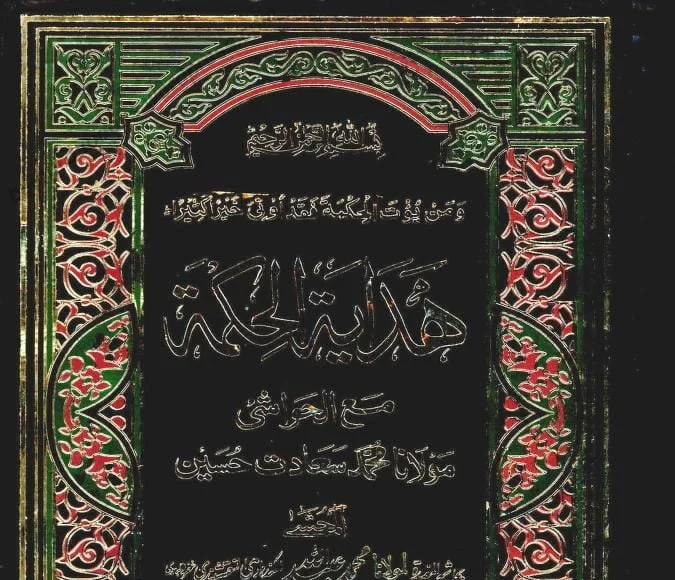 بسم الله الرحمن الرحيم
ومن يؤت الحكمة فقد أوتي خيرا كثيرا
هداية الحكمة
مع الحواشي
مولانا محمد سعادت حسين
المحشى
مولانا محمد